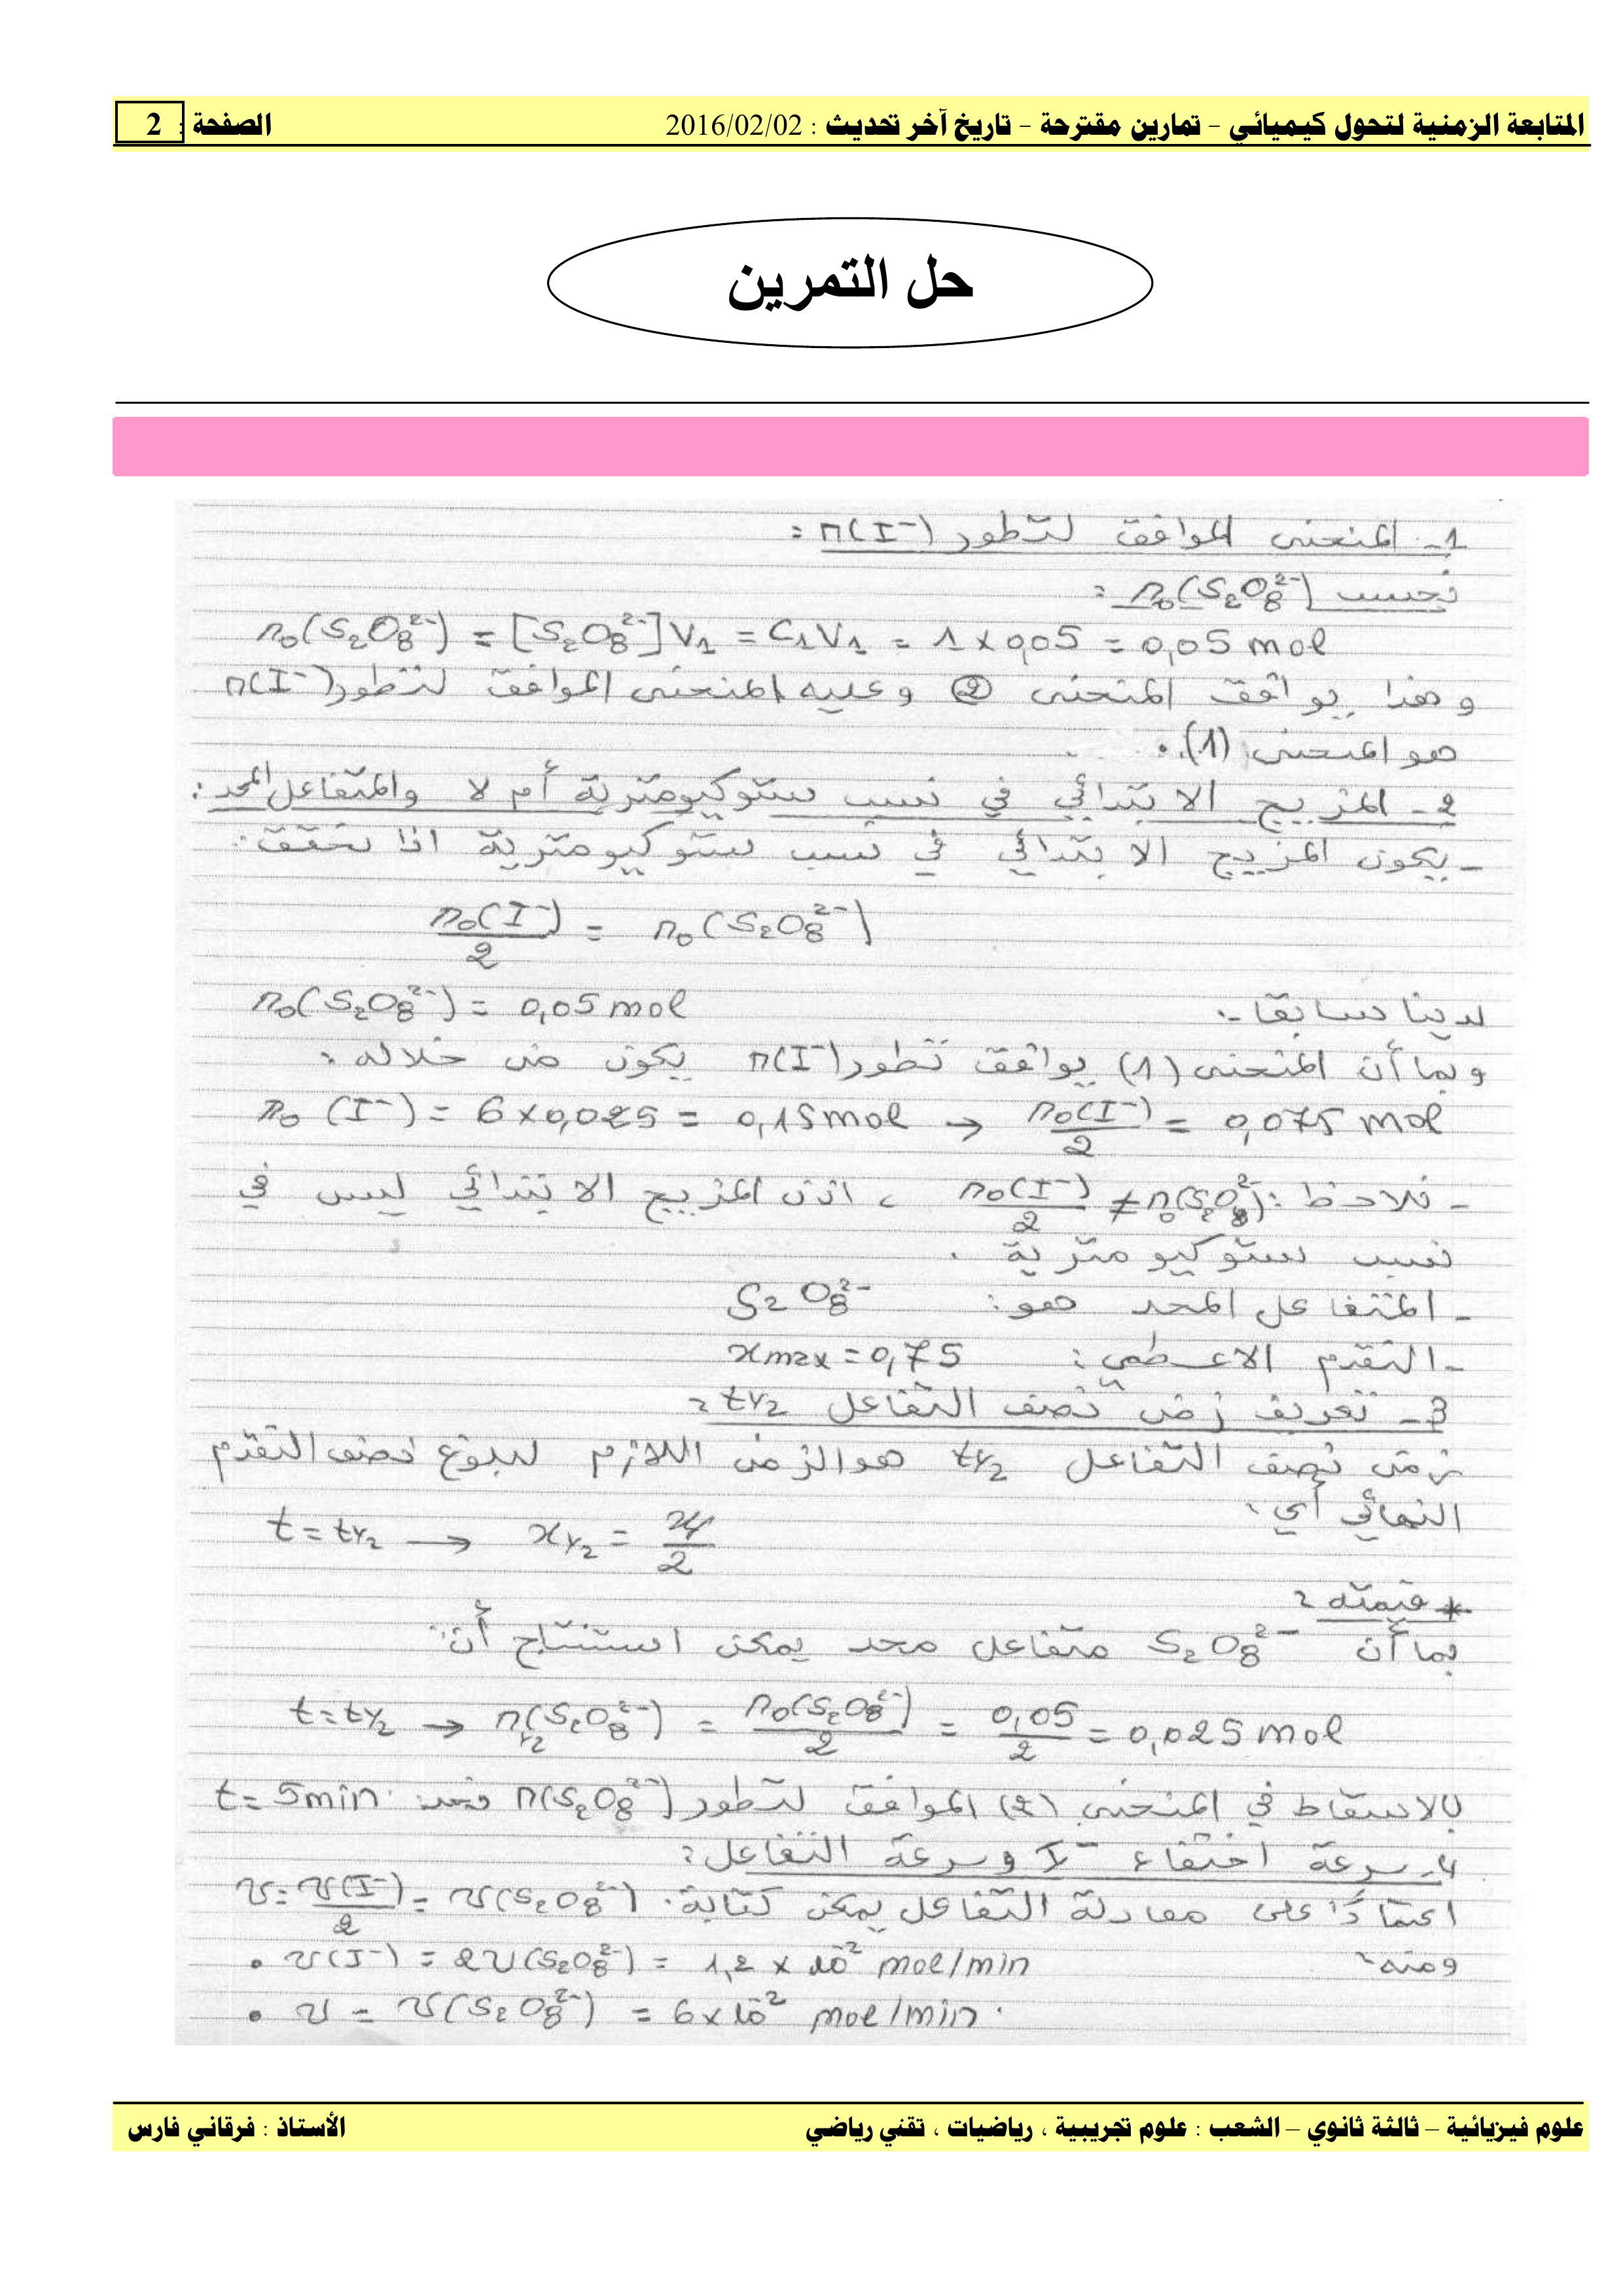 المتابعة الزمنية لتحول كيميائي – تمارين مقترحة – تاريخ آخر تحديث : 2016/02/02 الصفحة : 2
حل التمرين
1- المنحنى الموافق لتطور n(I⁻) :
نحسب n₀(S₂O₈²⁻) :
n₀(S₂O₈²⁻) = [S₂O₈²⁻]V₁ = C₁V₁ = 1 × 0,05 = 0,05 mol
و هذا يوافق المنحنى (2) و عليه المنحنى الموافق لتطور n(I⁻)
هو المنحنى (1).
2- المزيج الابتدائي في نسب ستوكيومترية أم لا والمتفاعل المحد :
- يكون المزيج الابتدائي في نسب ستوكيومترية اذا تحقق :
n₀(I⁻)/2 = n₀(S₂O₈²⁻)
لدينا سابقا : n₀(S₂O₈²⁻) = 0,05 mol
وبما أن المنحنى (1) يوافق تطور n(I⁻) يكون من خلاله :
n₀(I⁻) = 6 × 0,025 = 0,15 mol → n₀(I⁻)/2 = 0,075 mol
- نلاحظ : n₀(I⁻)/2 ≠ n₀(S₂O₈²⁻) ، اذن المزيج الابتدائي ليس في
نسب ستوكيومترية .
- المتفاعل المحد هو : S₂O₈²⁻
- التقدم الاعظمي : xmax = 0,75
3- تعريف زمن نصف التفاعل t₁/₂ :
زمن نصف التفاعل t₁/₂ هو الزمن اللازم لبلوغ نصف التقدم
النهائي أي :
t = t₁/₂ → x₁/₂ = xf/2
* قيمته :
بما أن S₂O₈²⁻ متفاعل محد يمكن استنتاج أن :
t = t₁/₂ → n₁/₂(S₂O₈²⁻) = n₀(S₂O₈²⁻)/2 = 0,05/2 = 0,025 mol
بالاسقاط في المنحنى (2) الموافق لتطور n(S₂O₈²⁻) نجد : t = 5 min
4- سرعة اختفاء I⁻ و سرعة التفاعل :
اعتمادًا على معادلة التفاعل يمكن كتابة : v = v(I⁻)/2 = v(S₂O₈²⁻)
ومنه :
• v(I⁻) = 2v(S₂O₈²⁻) = 1,2 × 10⁻² mol/min
• v = v(S₂O₈²⁻) = 6 × 10⁻² mol/min .
علوم فيزيائية – ثالثة ثانوي – الشعب : علوم تجريبية ، رياضيات ، تقني رياضي الأستاذ : فرقاني فارس